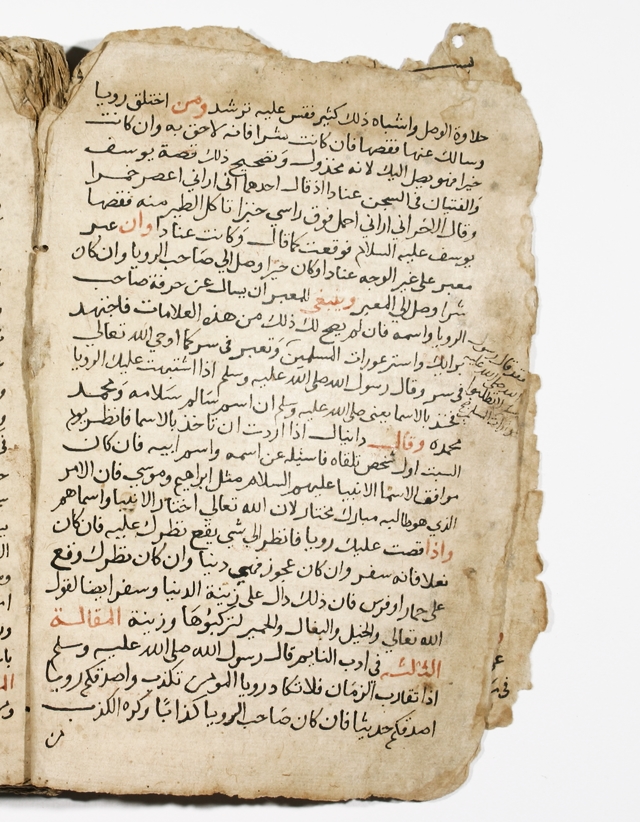 حلاوة الوصل واشباه ذلك كثير فقس عليه ترشد ومن اختلق رويا
وسالك عنها فقصها فان كانت شرا فانه لاحق به وان كانت
خيرا فهو يصل اليك لانه مخذول وتصحيح ذلك قصة يوسف
والفتيان في السجن عنادا اذ قال احدهما انى اراني اعصر خمرا
وقال الاخر اني اراني احمل فوق راسي خبزا تاكل الطير منه فقصها
يوسف عليه السلام فوقعت كما قال وكانت عنادا وان عبر
معبر على غير الوجه عنادا وكان خيرا وصل الي صاحب الرويا وان كان
شرا وصل الي المعبر وينبغي للمعبر ان يسال عن حرفة صاحب
الرويا واسمه فان لم يصح لك ذلك من هذه العلامات فاجتهد
برايك واستر عورات المسلمين وتعبر في سر كما اوحي الله تعالى
في سر وقال رسول الله صلى الله عليه وسلم اذا اشتبهت عليك الرويا
فخذ بالاسما يعنى صلى الله عليه وسلم ان اسم سالم سلامه ومحمد
محمده وقال دانيال اذا اردت ان تاخذ بالاسما فانظر يوم
السبت اول شخص تلقاه فاسئله عن اسمه واسم ابيه فان كان
موافق الاسما الانبيا عليهم السلام مثل ابراهيم وموسي فان الامر
الذى هو طالبه مبارك مختار لان الله تعالي اختار الانبيا واسماهم
واذا قصت عليك رويا فانظر الي شي يقع نظرك عليه فان كان
نعلا فانه سفر وان كان عجوز فهي دنيا وان كان نظرك وقع
على حمار او فرس فان ذلك دال على زينة الدنيا وسفر ايضا لقول
الله تعالي والخيل والبغال والحمير لتركبوها وزينة المقالة
الثالثه في ادب النايم قال رسول الله صلى الله عليه وسلم
اذا تقارب الزمان فلا تكاد رويا المومن تكذب واصدقكم رويا
اصدقكم حديثا فان كان صاحب الرويا كذابا وكره الكذب
من